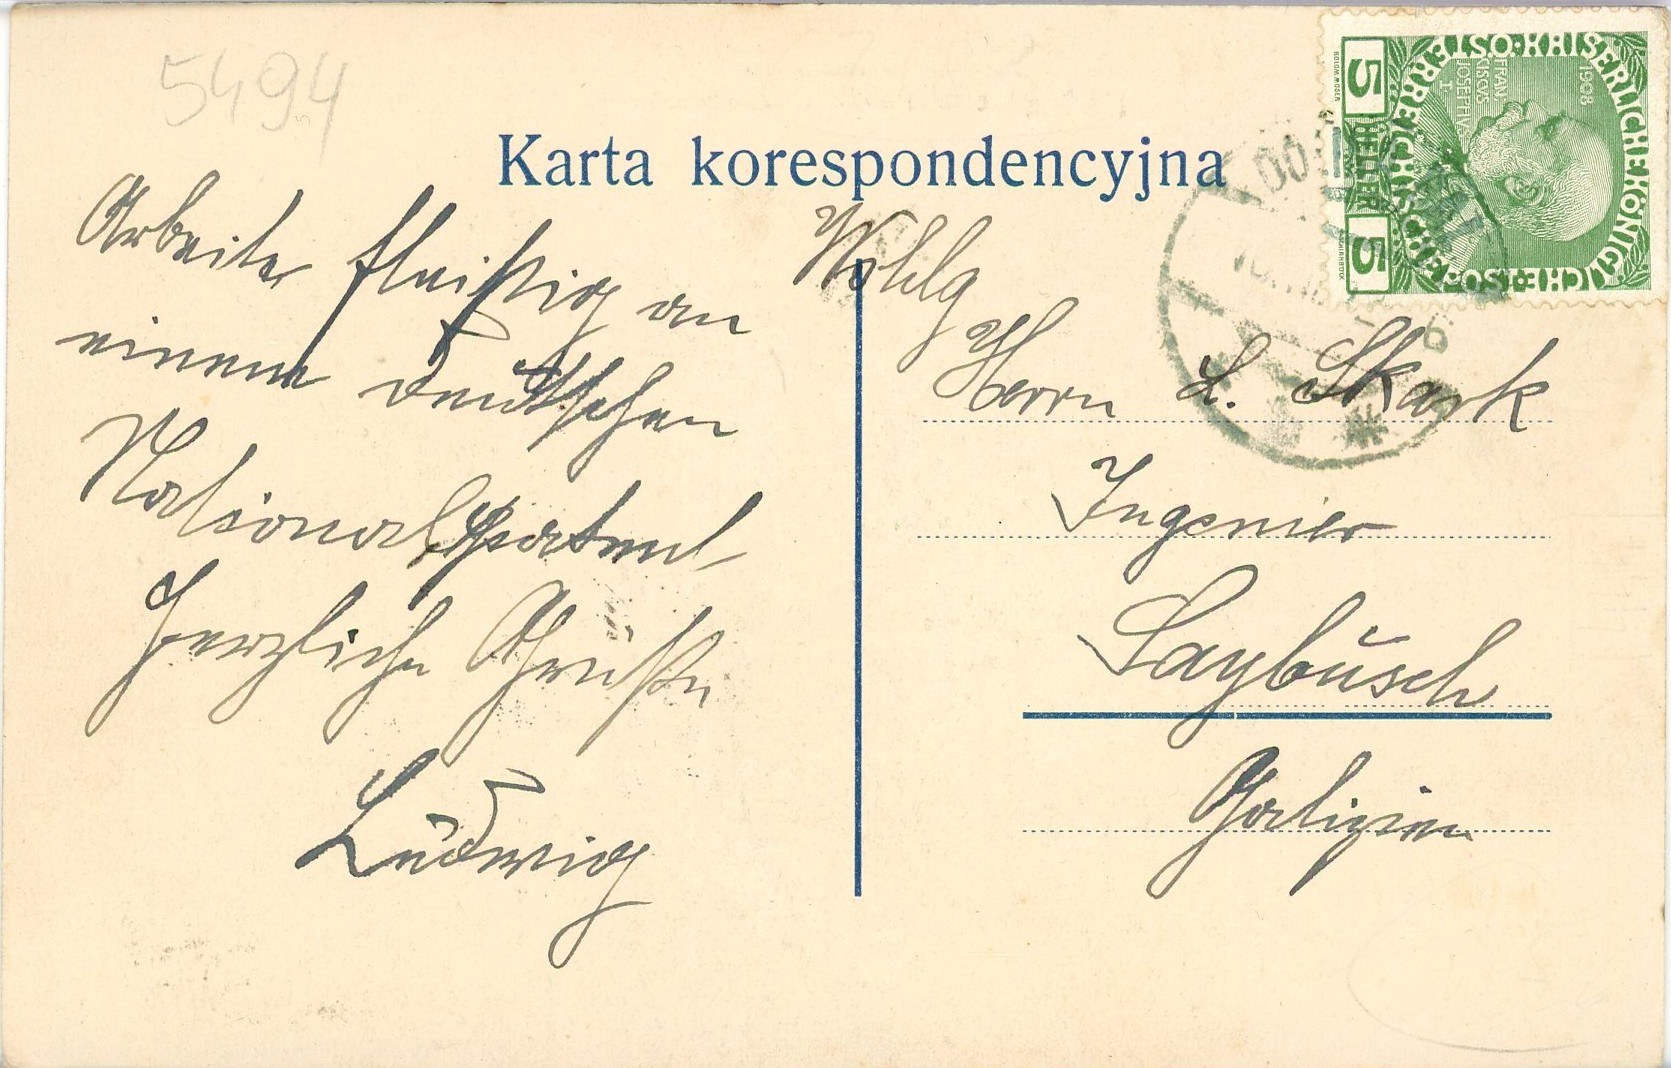 5494
Karta korespondencyjna
Arbeite fleißig an
einem deutschen
Nationalpatent
Herzliche Grüße
Ludwig
Wohlg
Herrn L. Skark
Ingenier
Saybusch
Galizien
KAISERLICHE KÖNIGLICHE ÖSTERREICHISCHE POST
1908
FRANCISCVS
IOSEPHVS
I
5 HELLER 5